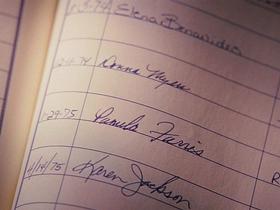 3-74 Elena Benavides
12-11-74 Donna Myers
1-29-75 Pamela Farris
4/14/75 Karen Jackson
R